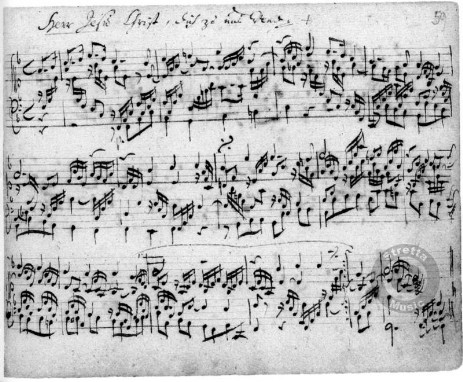 Herr Jesu Christ, dich zu uns wend.
Stretta
Music